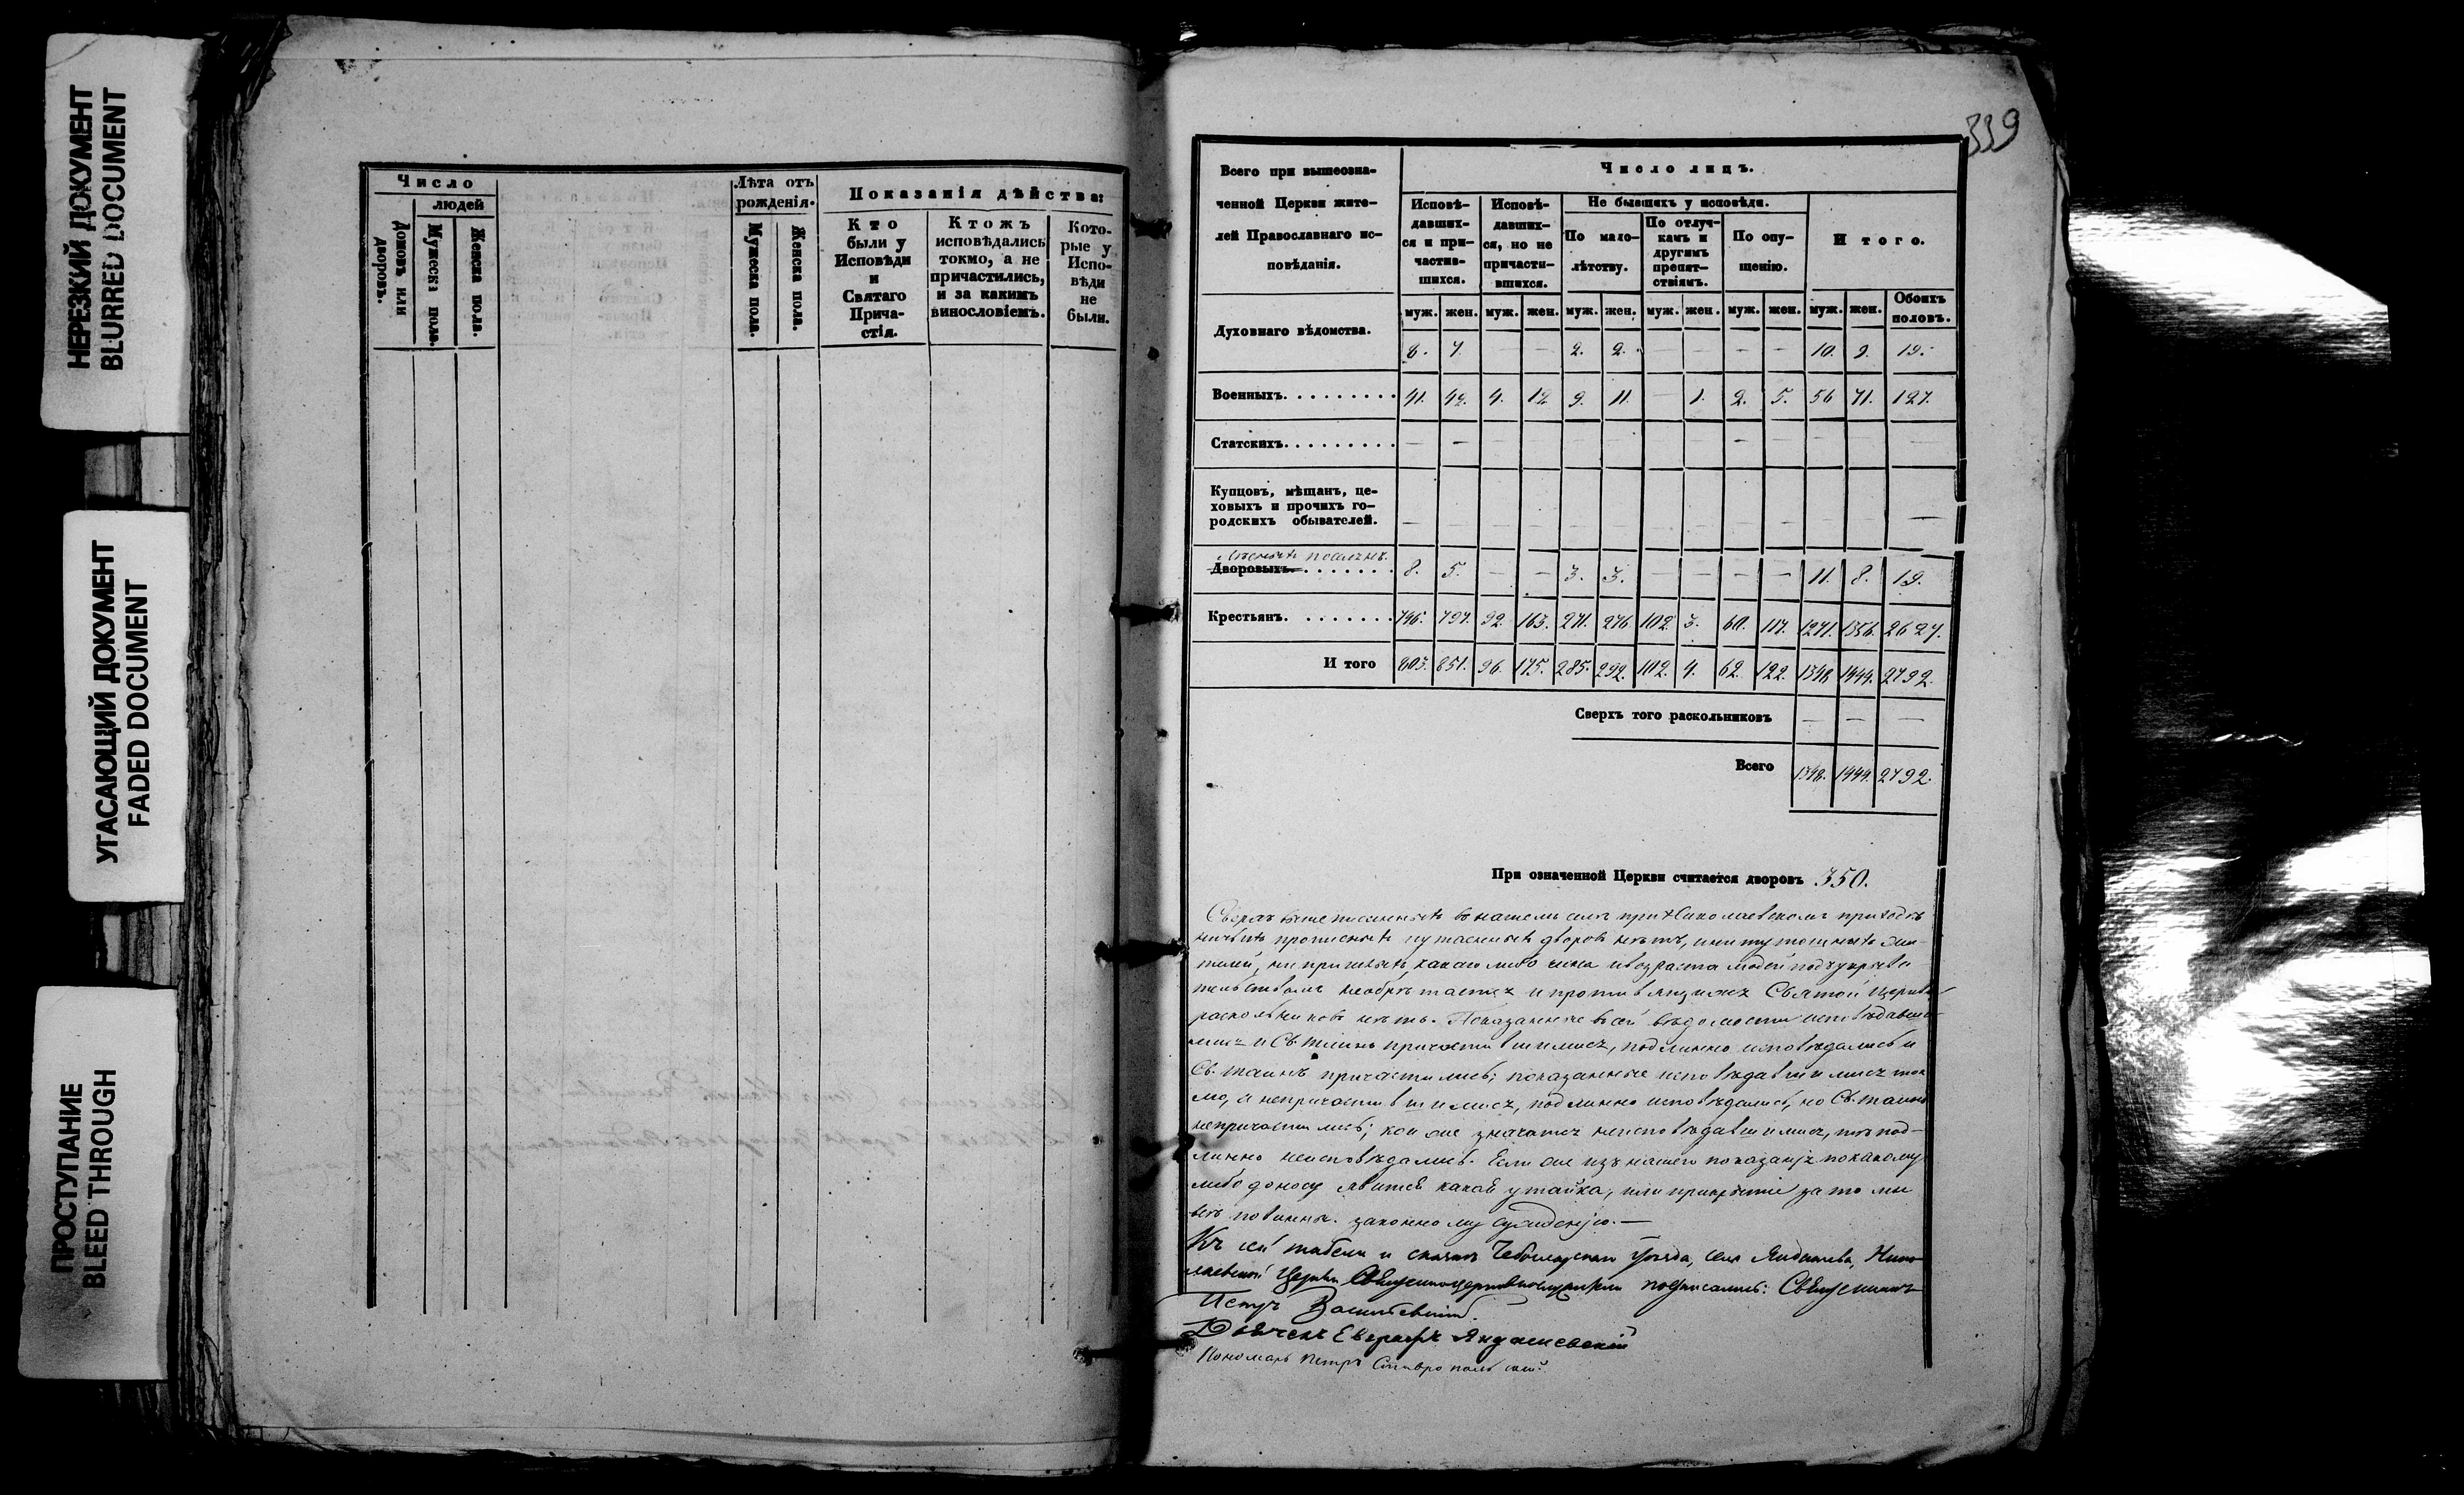 НЕРЕЗКИЙ ДОКУМЕНТ
BLURRED DOCUMENT
УГАСАЮЩИЙ ДОКУМЕНТ
FADED DOCUMENT
ПРОСТУПАНИЕ
BLEED THROUGH
Число
людей
Домовъ или дворовъ.
Мужеска пола.
Женска пола.
Лѣта отъ рожденія.
Мужеска пола.
Женска пола.
Показанія дѣйства:
Кто
были у
Исповѣди
и
Святаго
Прича-
стія.
Ктожъ
исповѣдались
токмо, а не
причастились,
и за какимъ
винословіемъ.
Кото-
рые у
Испо-
вѣди
не
были.
339
Всего при вышеозна-
ченной Церкви жите-
лей Православнаго ис-
повѣданія.
Число лицъ.
Исповѣ-
давших-
ся и при-
частив-
шихся.
Исповѣ-
давших-
ся, но не
причасти-
вшихся.
Не бывшихъ у исповѣди.
По мало-
лѣтству.
По отлуч-
камъ и
другимъ
препят-
ствіямъ.
По опу-
щенію.
Итого.
муж. жен. муж. жен. муж. жен. муж. жен. муж. жен. муж. жен. Обоихъ половъ.
Духовнаго вѣдомства. 8. 7. — — 2. 2. — — — — 10. 9. 19.
Военныхъ. 41. 42. 4. 12 9. 11. — 1. 2. 5. 56 71. 127.
Статскихъ.
Купцовъ, мѣщанъ, це-
ховыхъ и прочихъ го-
родскихъ обывателей.
Дворовыхъ 8. 5. — — 3. 3. — — — — 11. 8. 19.
Крестьянъ. 746. 797. 92. 163. 271. 276 102. 3. 60. 117. 1271. 1356. 2627.
И того 803. 851. 96. 175. 285. 292. 102. 4. 62. 122. 1348. 1444. 2792.
Сверхъ того раскольниковъ — — —
Всего 1348. 1444. 2792.
При означенной Церкви считается дворовъ 350.
Сверхъ вышеписанныхъ въ нашемъ селѣ при Николаевскомъ приходѣ
прописныхъ и утаенныхъ дворовъ нѣтъ,
какого либо чина и возраста людей подъ укрыва
тельствомъ необрѣтается и противящихся Святой Церкви
раскольниковъ нѣтъ. Показанные въ сей вѣдомости исповѣдавши
мися и Св. таинъ причастившимися, подлинно исповѣдались и
Св. таинъ причастились; показанные исповѣдавшимися ток
мо, и непричастившимися, подлинно исповѣдались, но Св. таинъ
непричастились; кои же значатся неисповѣдавшимися, тѣ под-
линно неисповѣдались. Если же изъ нашего показанія по какому
либо доносу явится какая утайка, или прикрытіе за то мы
всѣ повинны законному сужденію.—
Къ сей табели и сказкѣ Чебоксарскаго Уѣзда, села Яндашева, Нико
лаевской Церкви Священноцерковнослужители подписались: Священникъ
Петръ
Дьячекъ Евграфъ Яндашевскій
Пономарь Петръ Ставропольскій